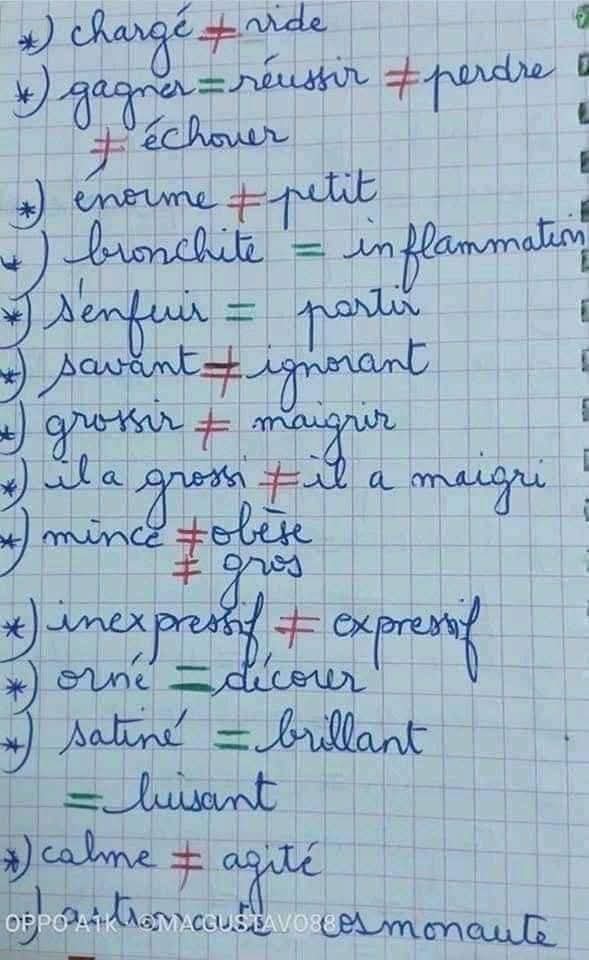 *) chargé ≠ vide
*) gagner = réussir ≠ perdre
≠ échouer
*) énorme ≠ petit
*) bronchite = inflammation
*) s'enfuir = partir
*) savant ≠ ignorant
*) grossir ≠ maigrir
*) il a grossi ≠ il a maigri
*) mince ≠ obèse
≠ gros
*) inexpressif ≠ expressif
*) orné = décorer
*) satiné = brillant
= luisant
*) calme ≠ agité
*) cosmonaute
OPPO A1K ©MA.GUSTAVO88